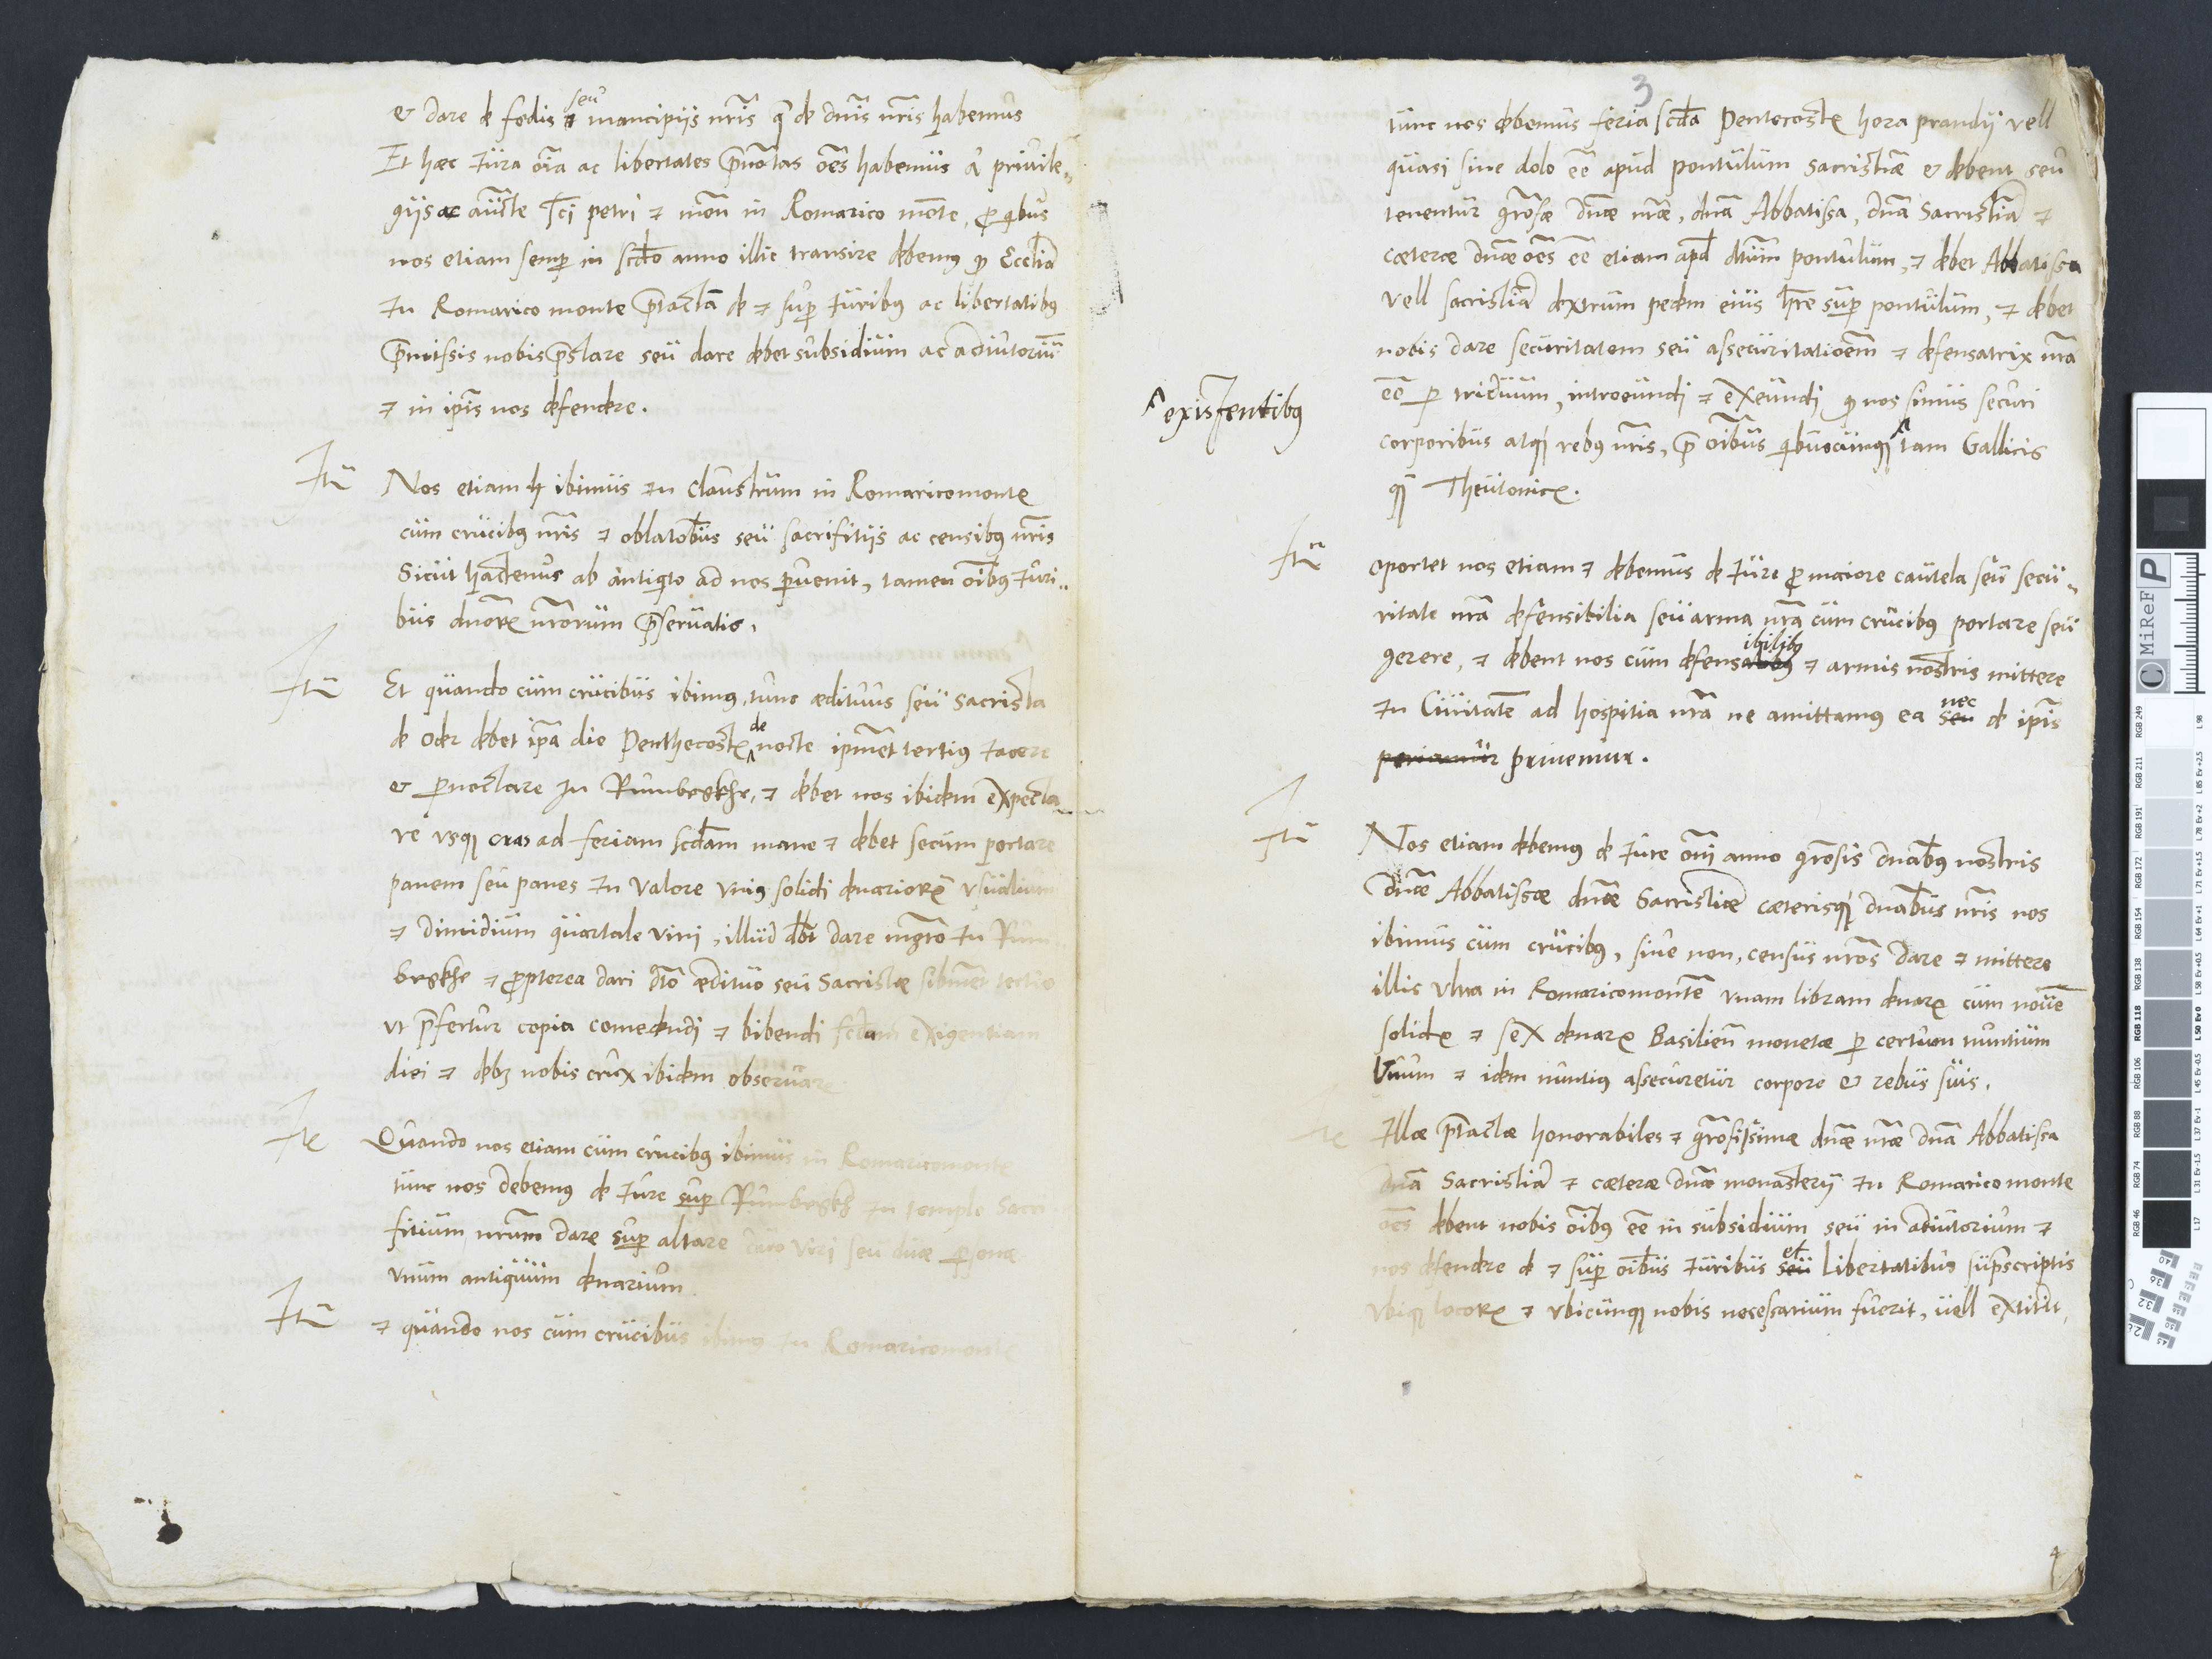 & dare de fedis seu mancipiis nr̃is q̃ de dnĩs nr̃is habemus
Et hæc iura oĩa ac libertates p̃notas oẽs habemus a privile„
giis ac aũcte Sc̃i petri & in Romarico mõte, p̱ qibus
nos etiam semp̱ in scdo anno illic transire debemus ꝙ Eccliã
In Romarico monte p̃tactã de & sup̱ iuribus ac libertatibus
p̃missis nobis p̃stare seu dare debet subsidium ac adiutoriũ
& in ip̃is nos defendere.
Itm̃ Nos etiam ibimus In claustrum in Romaricomonte
cum crucibus nr̃is & oblatõbus seu sacrifitiis ac censibus nr̃is
Sicut hactenus ab antiqto ad nos p̱venit, tamen oĩbus iuri„
bus dnõrꝫ nr̃orum p̃servatis.
Itm̃ Et quando cum crucibus ibimus, tunc ædituus seu Sacrista
de Oder debet ip̃a die Penthecostꝫ de nocte ip̃met tertius iacere
& p̱noctare In Rumbeskhe, & debet nos ibidem expecta
re usqꝫ cras ad feriam scdam mane & debet secum portare
panem seu panes In valore unius solidi denariorꝫ usualium
& dimidium quartale vini, illud dbt dare In Rum
beskhe & p̱pterea dari dto ædituo seu Sacristæ sibimet tertio
ut p̃fertur copia comedendi & bibendi scdam exigentiam
diei & debꝫ nobis crux ibidem observare
Ite Quando nos etiam cum crucibus ibimus in Romaricomonte
tunc nos debemus de iure sup̱ Rumbeskh In templo Sacri
fitium nr̃um dare sup̱ altare duo viri seu duæ p̱sonæ
unum antiquum denarium.
Itm̃ & quando nos cum crucibus ibimus In Romaricomonte
3
tunc nos debemus feria scda Pentecostꝫ hora prandij vell
quasi sine dolo eẽ apud pontulum Sacristiæ & debent seu
tenentur grõsæ dnæ nræ, dnã Abbatissa, dnã Sacristia &
cæteræ dnæ oẽs eẽ etiam apd dtum pontulum, & debet Abbatissa
vell sacristiã dextrum pedem eius hr̃e sup̱ pontulum, & debet
nobis dare securitatem seu assecuritatioẽm & defensatrix nr̃a
eẽ p̱ triduum, introeundi & exeundi ꝙ nos simus securi
^existentibus
corporibus atqꝫ rebus nr̃is, p̃ oĩbus qibuscunqꝫ ^ tam Gallicis
qꝫ Theutonicꝫ.
Itm̃ oportet nos etiam & debemus de iure p̱ maiore cautela seu secu„
ritate nr̃a defensibilia seu arma nr̃a cum crucibus portare seu
gerere, & debent nos cum defensibilibus & armis nostris mittere
In Civitatẽ ad hospitia nr̃a ne amittamus ea seu nec de ip̃is
privemur.
Itm̃ Nos etiam debemus de iure omni anno grõsis dnabus nostris
dnæ Abbatissæ dnæ Sacristiæ cæterisqꝫ dnabus nr̃is nos
ibimus cum crucibus, sive non, census nr̃os dare & mittere
illis ultra in Romaricomontẽ unam libram denarꝫ cum novẽ
solidꝫ & sex denarꝫ Basilieñ monetæ p̱ certum nuntium
unum & idem nuntius assecuretur corpore & rebus suis.
Ite Illæ p̃tactæ honorabiles & grõsissimæ dnæ nræ dnã Abbatissa
dnã Sacristiã & cæteræ dnæ monasterij In Romarico monte
oẽs debent nobis oĩbus eẽ in subsidium seu in adiutorium &
nos defendere de & sup̱ oĩbus iuribus seu et libertatibus sup̃scriptis
ubiqꝫ locorꝫ & ubicunqꝫ nobis necessarium fuerit, vell extitit,
4